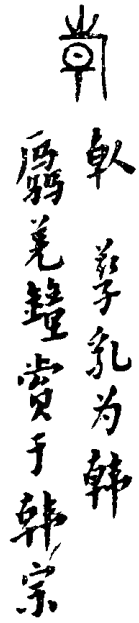 倝 孳乳为韩
羌鐘 賞于韩宗